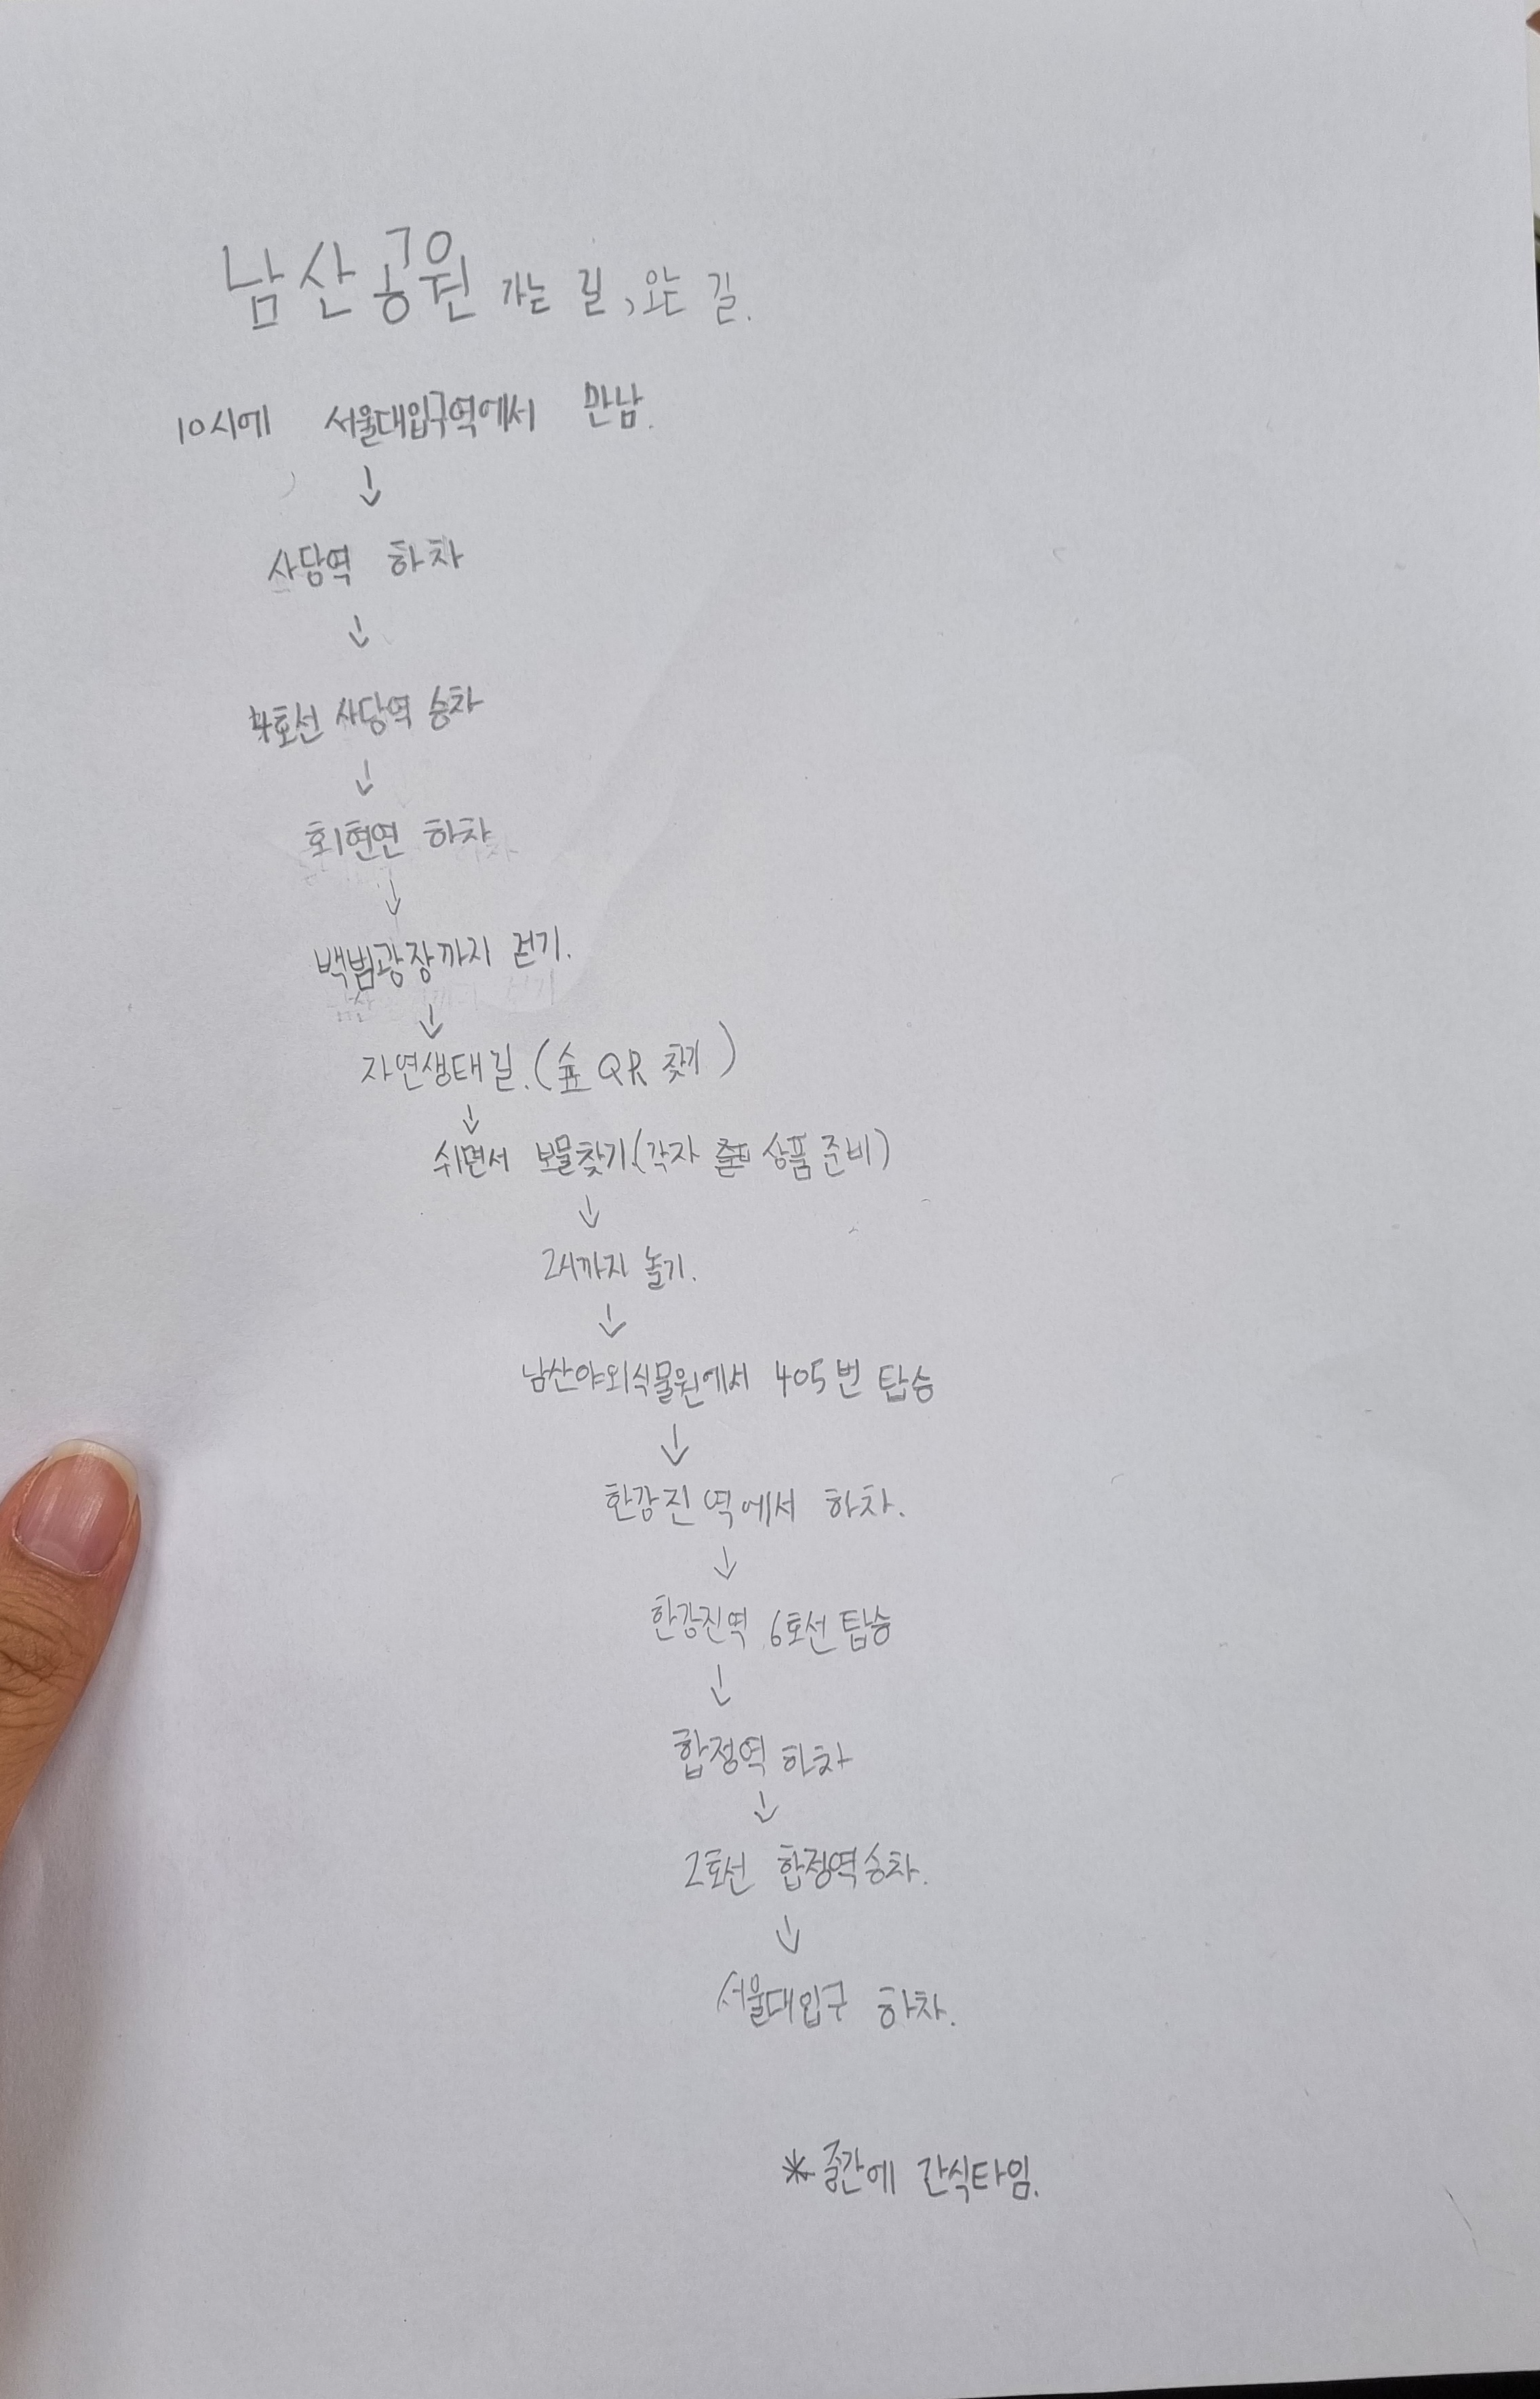 남산공원 가는 길, 오는 길.
10시에 서울대입구역에서 만남.
↓
사당역 하차
↓
4호선 사당역 승차
↓
회현연 하차
↓
백범광장까지 걷기.
↓
자연생태길.(숲 QR 찾기)
↓
쉬면서 보물찾기.(각자 상품 준비)
↓
2시까지 놀기.
↓
남산야외식물원에서 405번 탑승
↓
한강진역에서 하차.
↓
한강진역 6호선 탑승
↓
합정역 하차
↓
2호선 합정역 승차.
↓
서울대입구 하차.
* 중간에 간식타임.